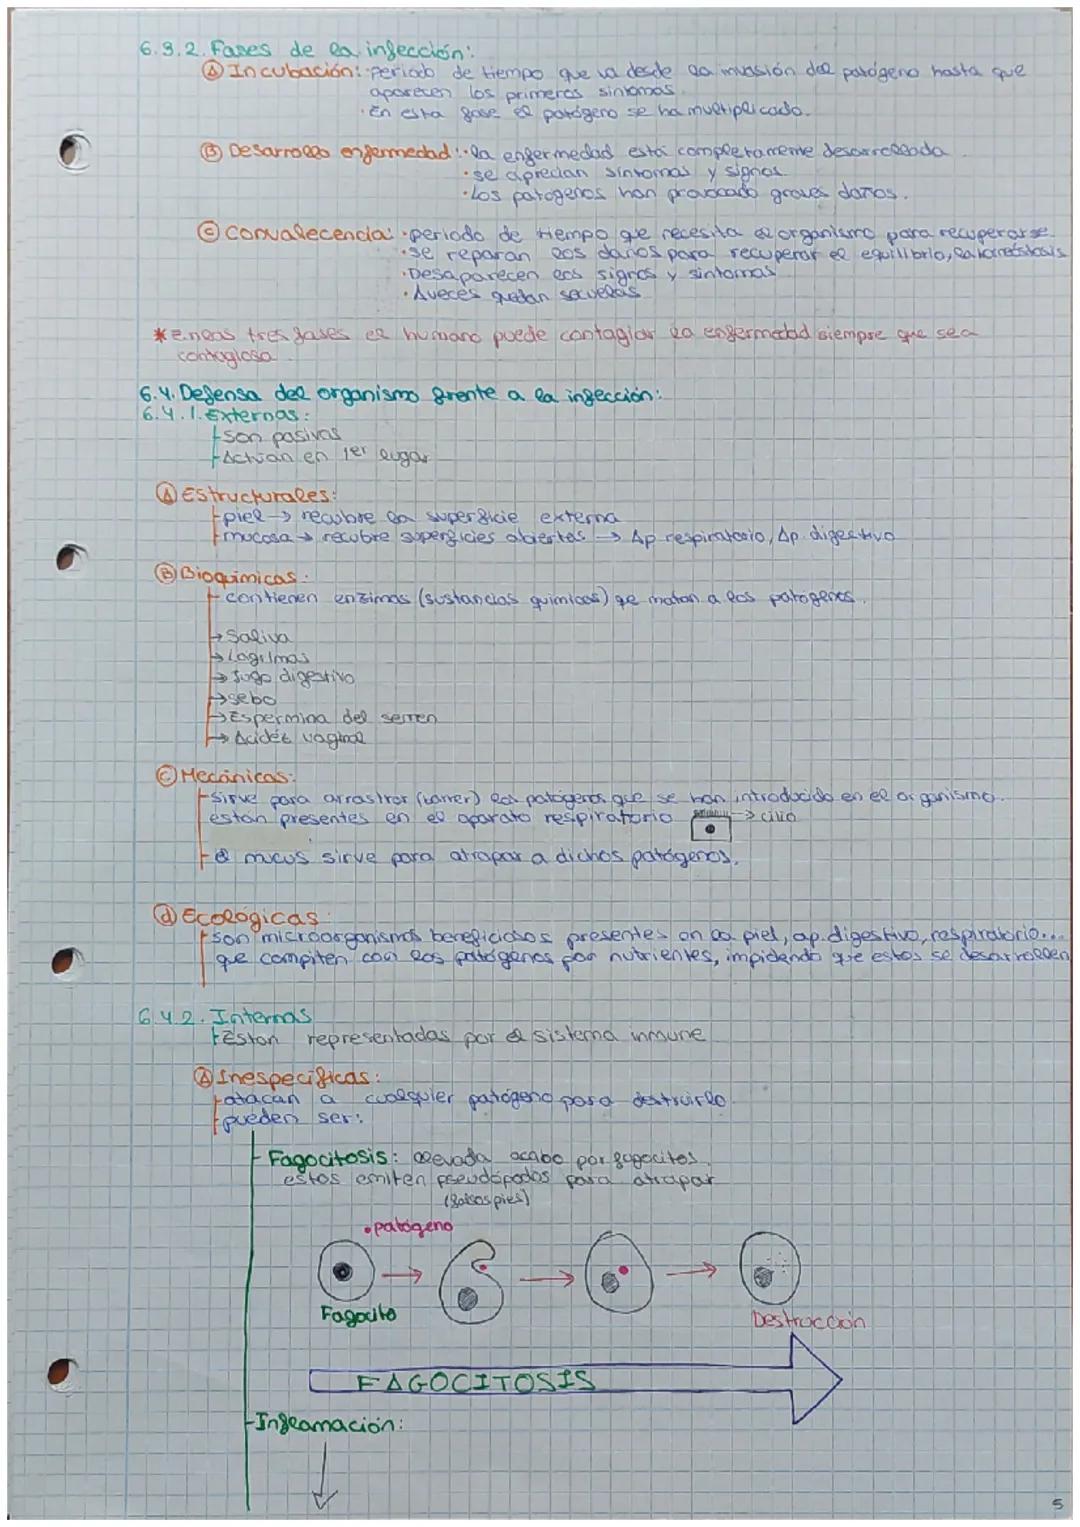 6.3.2. Fases de la infección:
Ⓐ Incubación: · periodo de tiempo que va desde la invasión del patógeno hasta que
aparecen los primeros síntomas.
· En esta fase el patógeno se ha multiplicado.
Ⓑ Desarrollo enfermedad: · la enfermedad está completamente desarrollada.
· se aprecian síntomas y signos
· Los patogenos han provocado graves daños.
Ⓒ Convalecencia: · periodo de tiempo qe necesita el organismo para recuperarse.
· se reparan los daños para recuperar el equilibrio, la homeóstasis
· Desaparecen los signos y síntomas
· Aveces quedan secuelas
* En las tres fases el humano puede contagiar la enfermedad siempre que sea
contagiosa.
6.4. Defensa del organismo frente a la infección:
6.4.1. Externas:
- son pasivas
- Actúan en 1er lugar
Ⓐ Estructurales:
- piel → recubre la superficie externa
- mucosa → recubre superficies abiertas → Ap. respiratorio, Ap. digestivo
Ⓑ Bioquímicas:
- contienen enzimas (sustancias químicas) qe matan a los patógenos.
→ Saliva
→ Lágrimas
→ Jugo digestivo
→ sebo
→ Espermina del semen
→ Acidéz vaginal
Ⓒ Mecánicas:
- sirve para arrastrar (barrer) los patógenos que se han introducido en el organismo.
están presentes en el aparato respiratorio → cilio
- el mucus sirve para atrapar a dichos patógenos.
ⓓ Ecológicas:
- son microorganismos beneficiosos presentes en la piel, ap. digestivo, respiratorio...
que compiten con los patógenos por nutrientes, impidendo qe estos se desarrollen
6.4.2. Internas
- Están representadas por el sistema inmune
Ⓐ Inespecíficas:
- atacan a cualquier patógeno para destruirlo.
- pueden ser:
- Fagocitosis: llevada acabo por fagocitos.
estos emiten pseudópodos para atrapar
(falsos pies)
• patógeno
Fagocito
Destrucción
FAGOCITOSIS
- Inflamación:
5